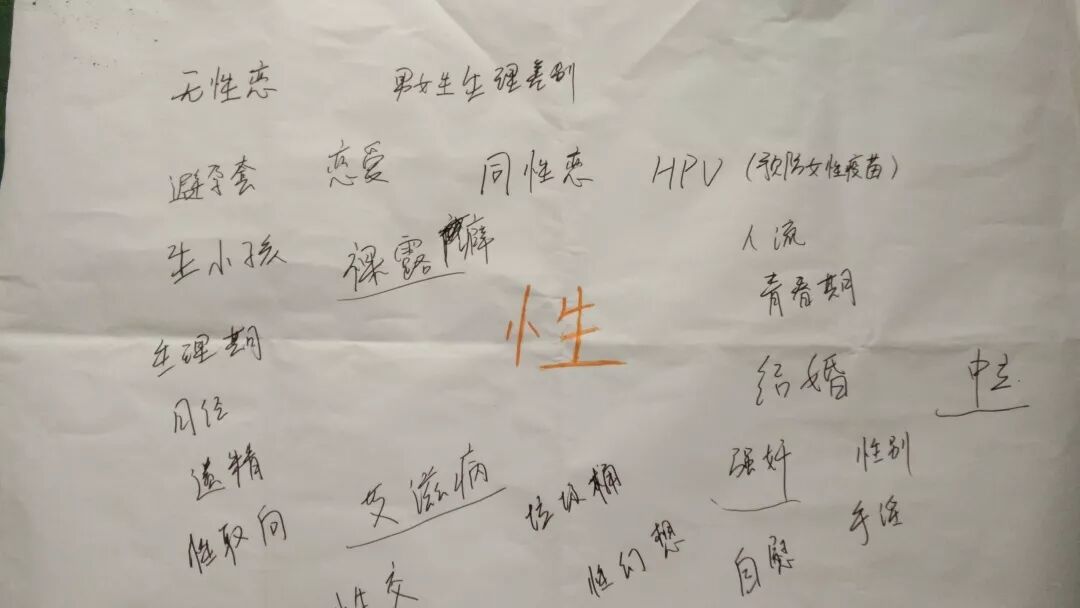 无性恋 男女生生理差别
避孕套 恋爱 同性恋 HPV (预防女性疫苗)
生小孩 裸露癖 人流
性 青春期
生理期 结婚 中立
月经
遗精 艾滋病 垃圾桶 强奸 性别
性取向 性幻想 自慰 手淫
性交